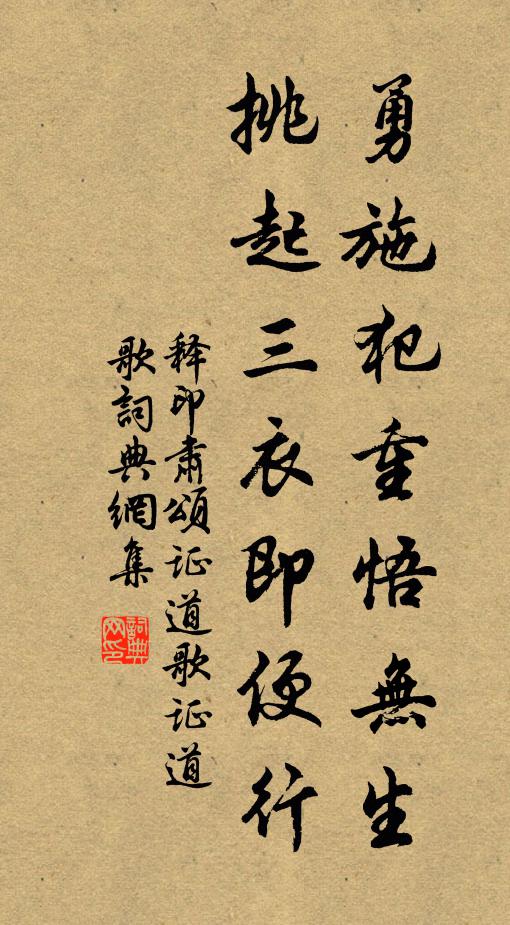 勇施犯重悟無生
挑起三衣即便行
释印肅頌证道歌证道
歌詞典網集
詞典网印